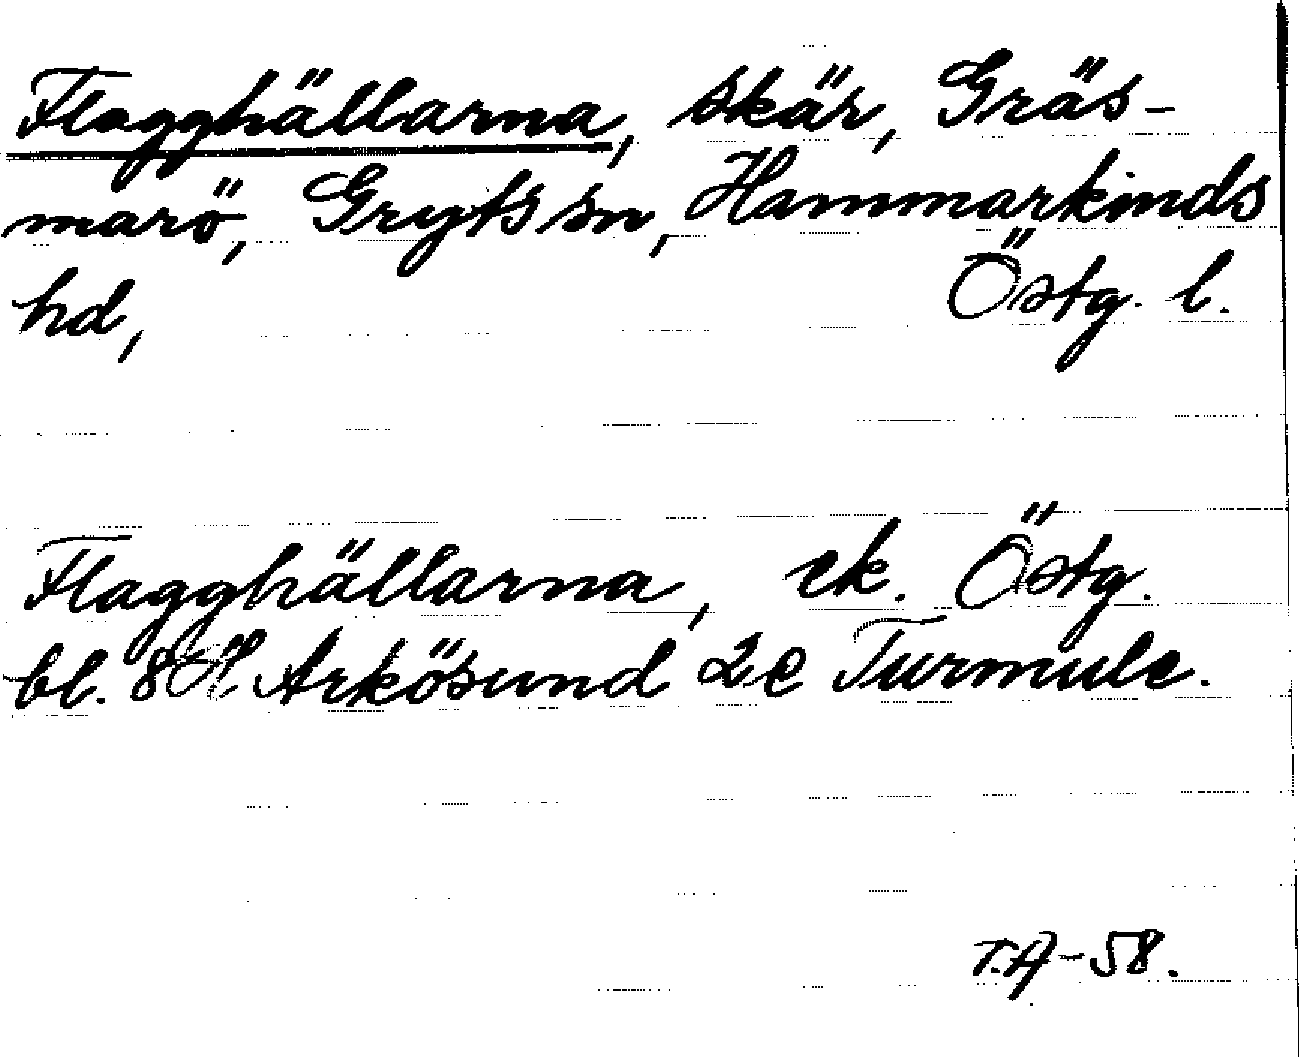 Flagghällarna, skär, Gräs-
marö, Gryts sn, Hammarkinds
hd, Östg. l.
Flagghällarna, ek. Östg.
bl. 8H Arkösund 2e Turmule.
T.A-58.